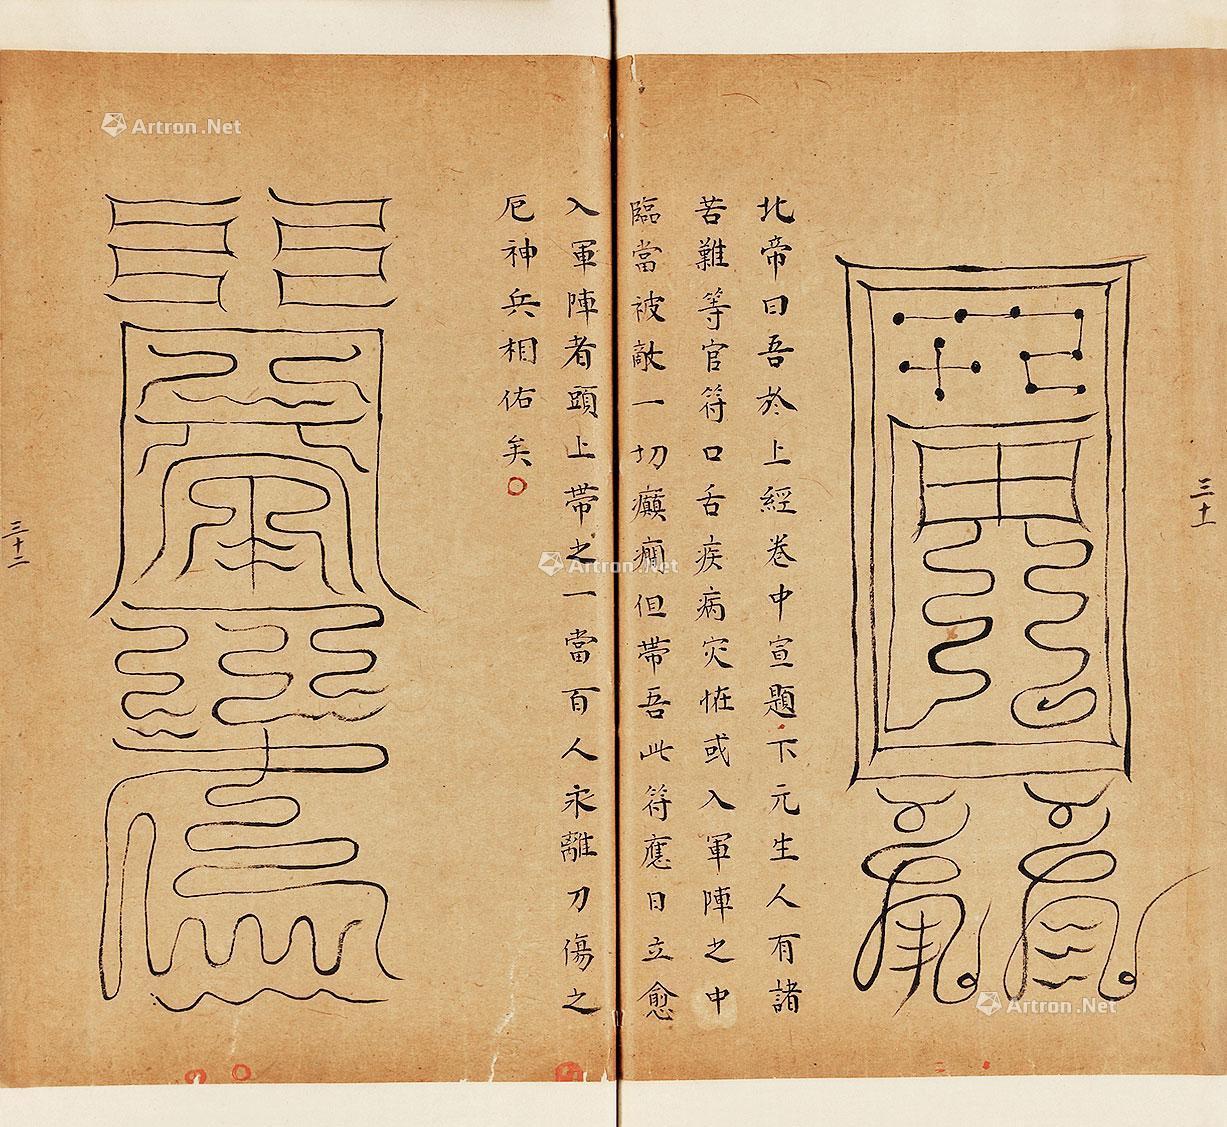 三十一
北帝曰吾於上經卷中宣題下元生人有諸
苦難等官符口舌疾病灾恠或入軍陣之中
臨當被敵一切癲癇但帶吾此符應日立愈
入軍陣者頭上帶之一當百人永離刀傷之
厄神兵相佑矣
三十二
Artron.Net
Artron.Net
Artron.Net